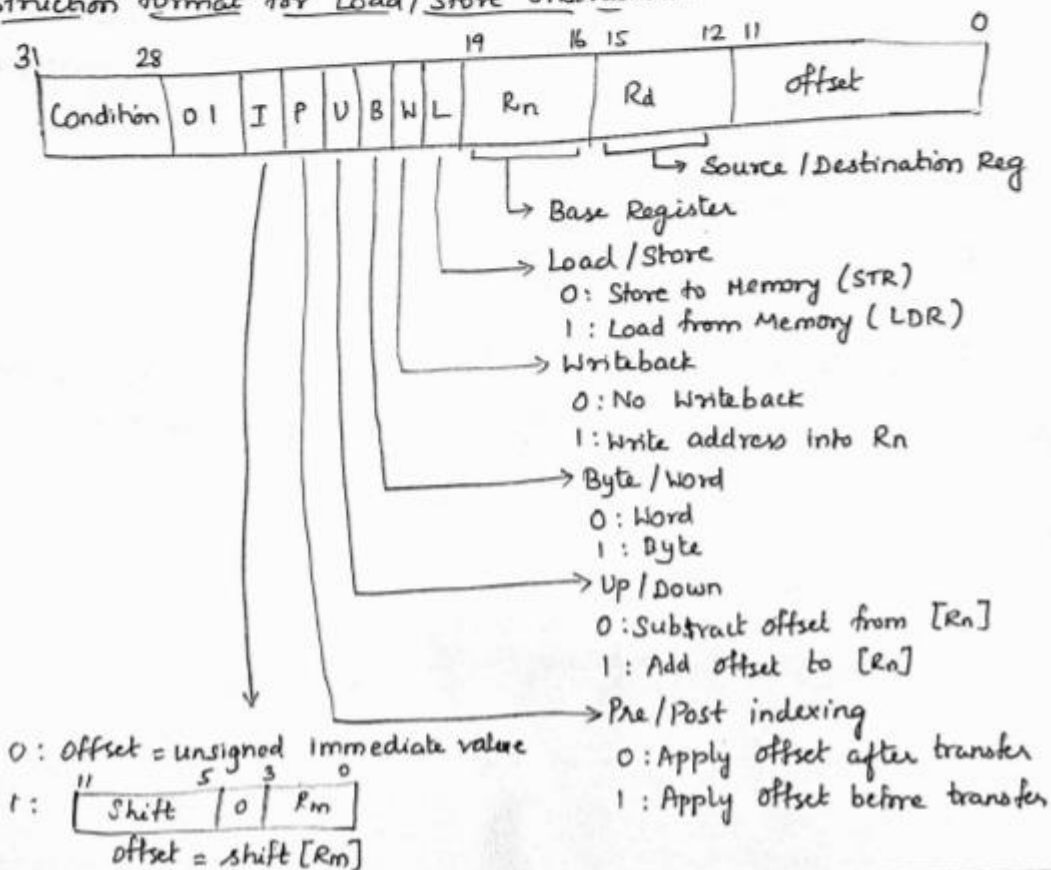 struction format for Load/Store
31 28 19 16 15 12 11 0
Condition 0 1 I P U B W L Rn Rd offset
Source / Destination Reg
Base Register
Load / Store
0: Store to Memory (STR)
1: Load from Memory (LDR)
Writeback
0: No Writeback
1: Write address into Rn
Byte / Word
0: Word
1: Byte
Up / Down
0: Subtract offset from [Rn]
1: Add offset to [Rn]
Pre / Post indexing
0: offset = unsigned immediate value
0: Apply offset after transfer
11 5 3 0
1: Shift 0 Rm
1: Apply offset before transfer
offset = shift [Rm]